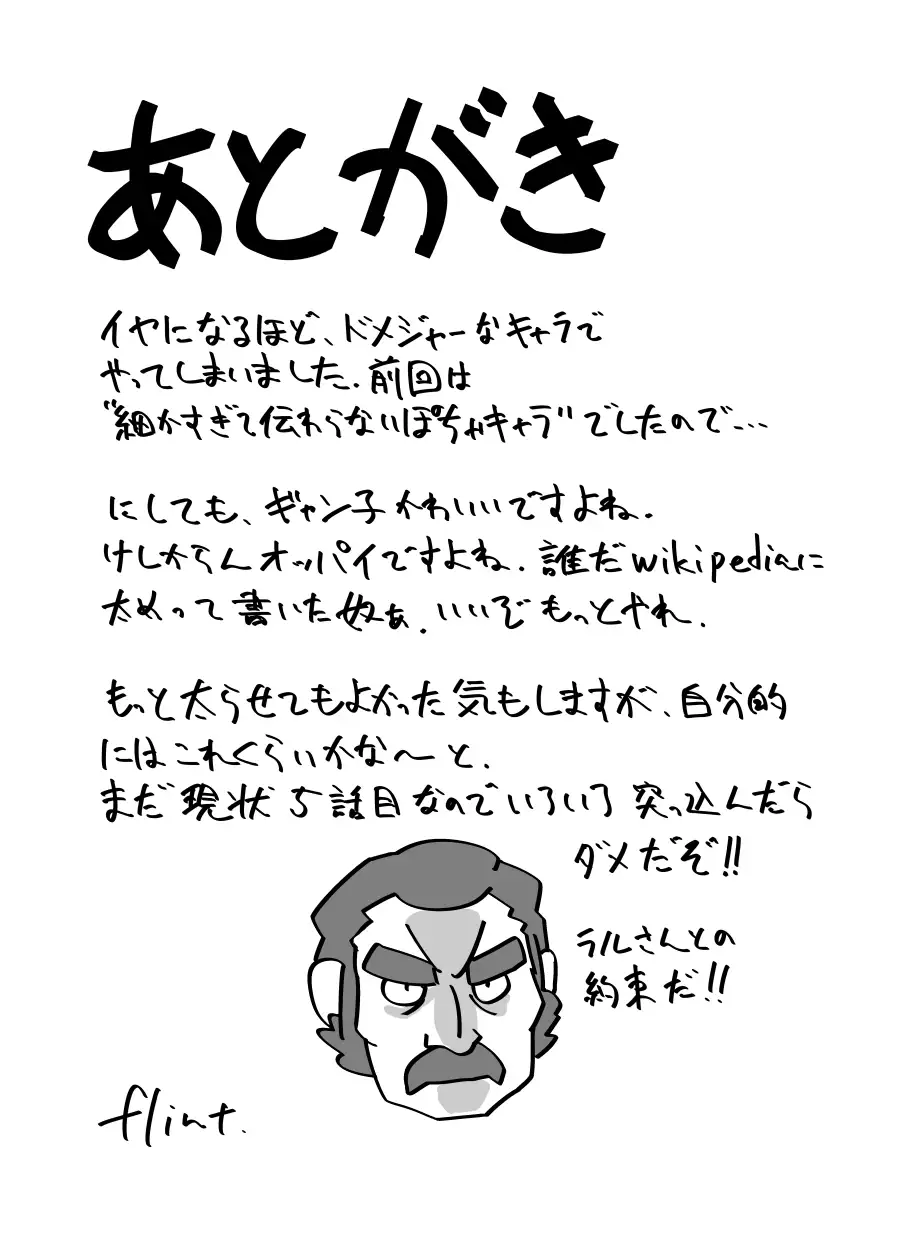 あとがき
イヤになるほど、ドメジャーなキャラで
やってしまいました.前回は
"細かすぎて伝わらないぽちゃキャラ"でしたので…
にしても、ギャン子かわいいですよね.
けしからんオッパイですよね.誰だwikipediaに
太めって書いた奴ぁ.いいぞもっとやれ.
もっと太らせてもよかった気もしますが、自分的
にはこれくらいかな～と.
まだ現状5話目なのでいろいろ突っ込んだら
ダメだぞ!!
ラルさんとの
約束だ!!
flint.